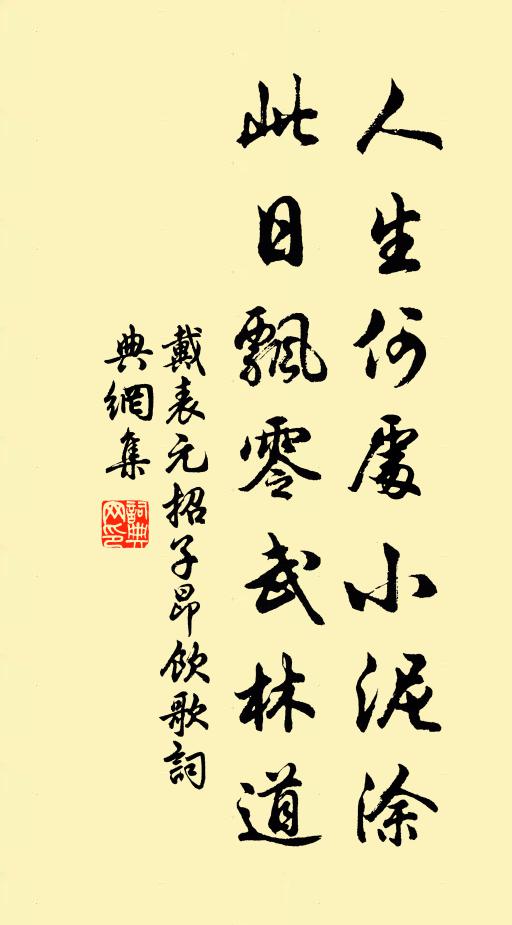 人生何處小泥涂
此日飄零武林道
戴表元招子昂飲歌詞
典網集
詞典網印